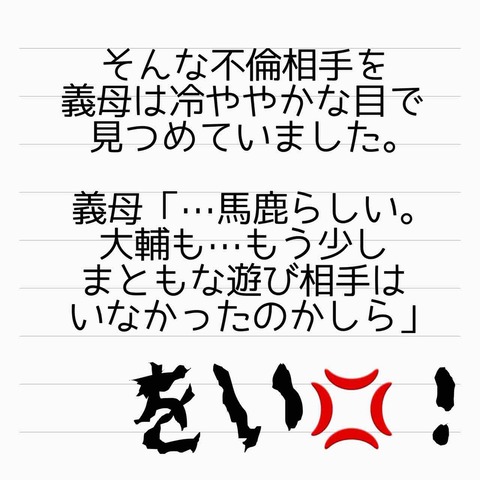 そんな不倫相手を
義母は冷ややかな目で
見つめていました。
義母「…馬鹿らしい。
大輔も…もう少し
まともな遊び相手は
いなかったのかしら」
をい💢!